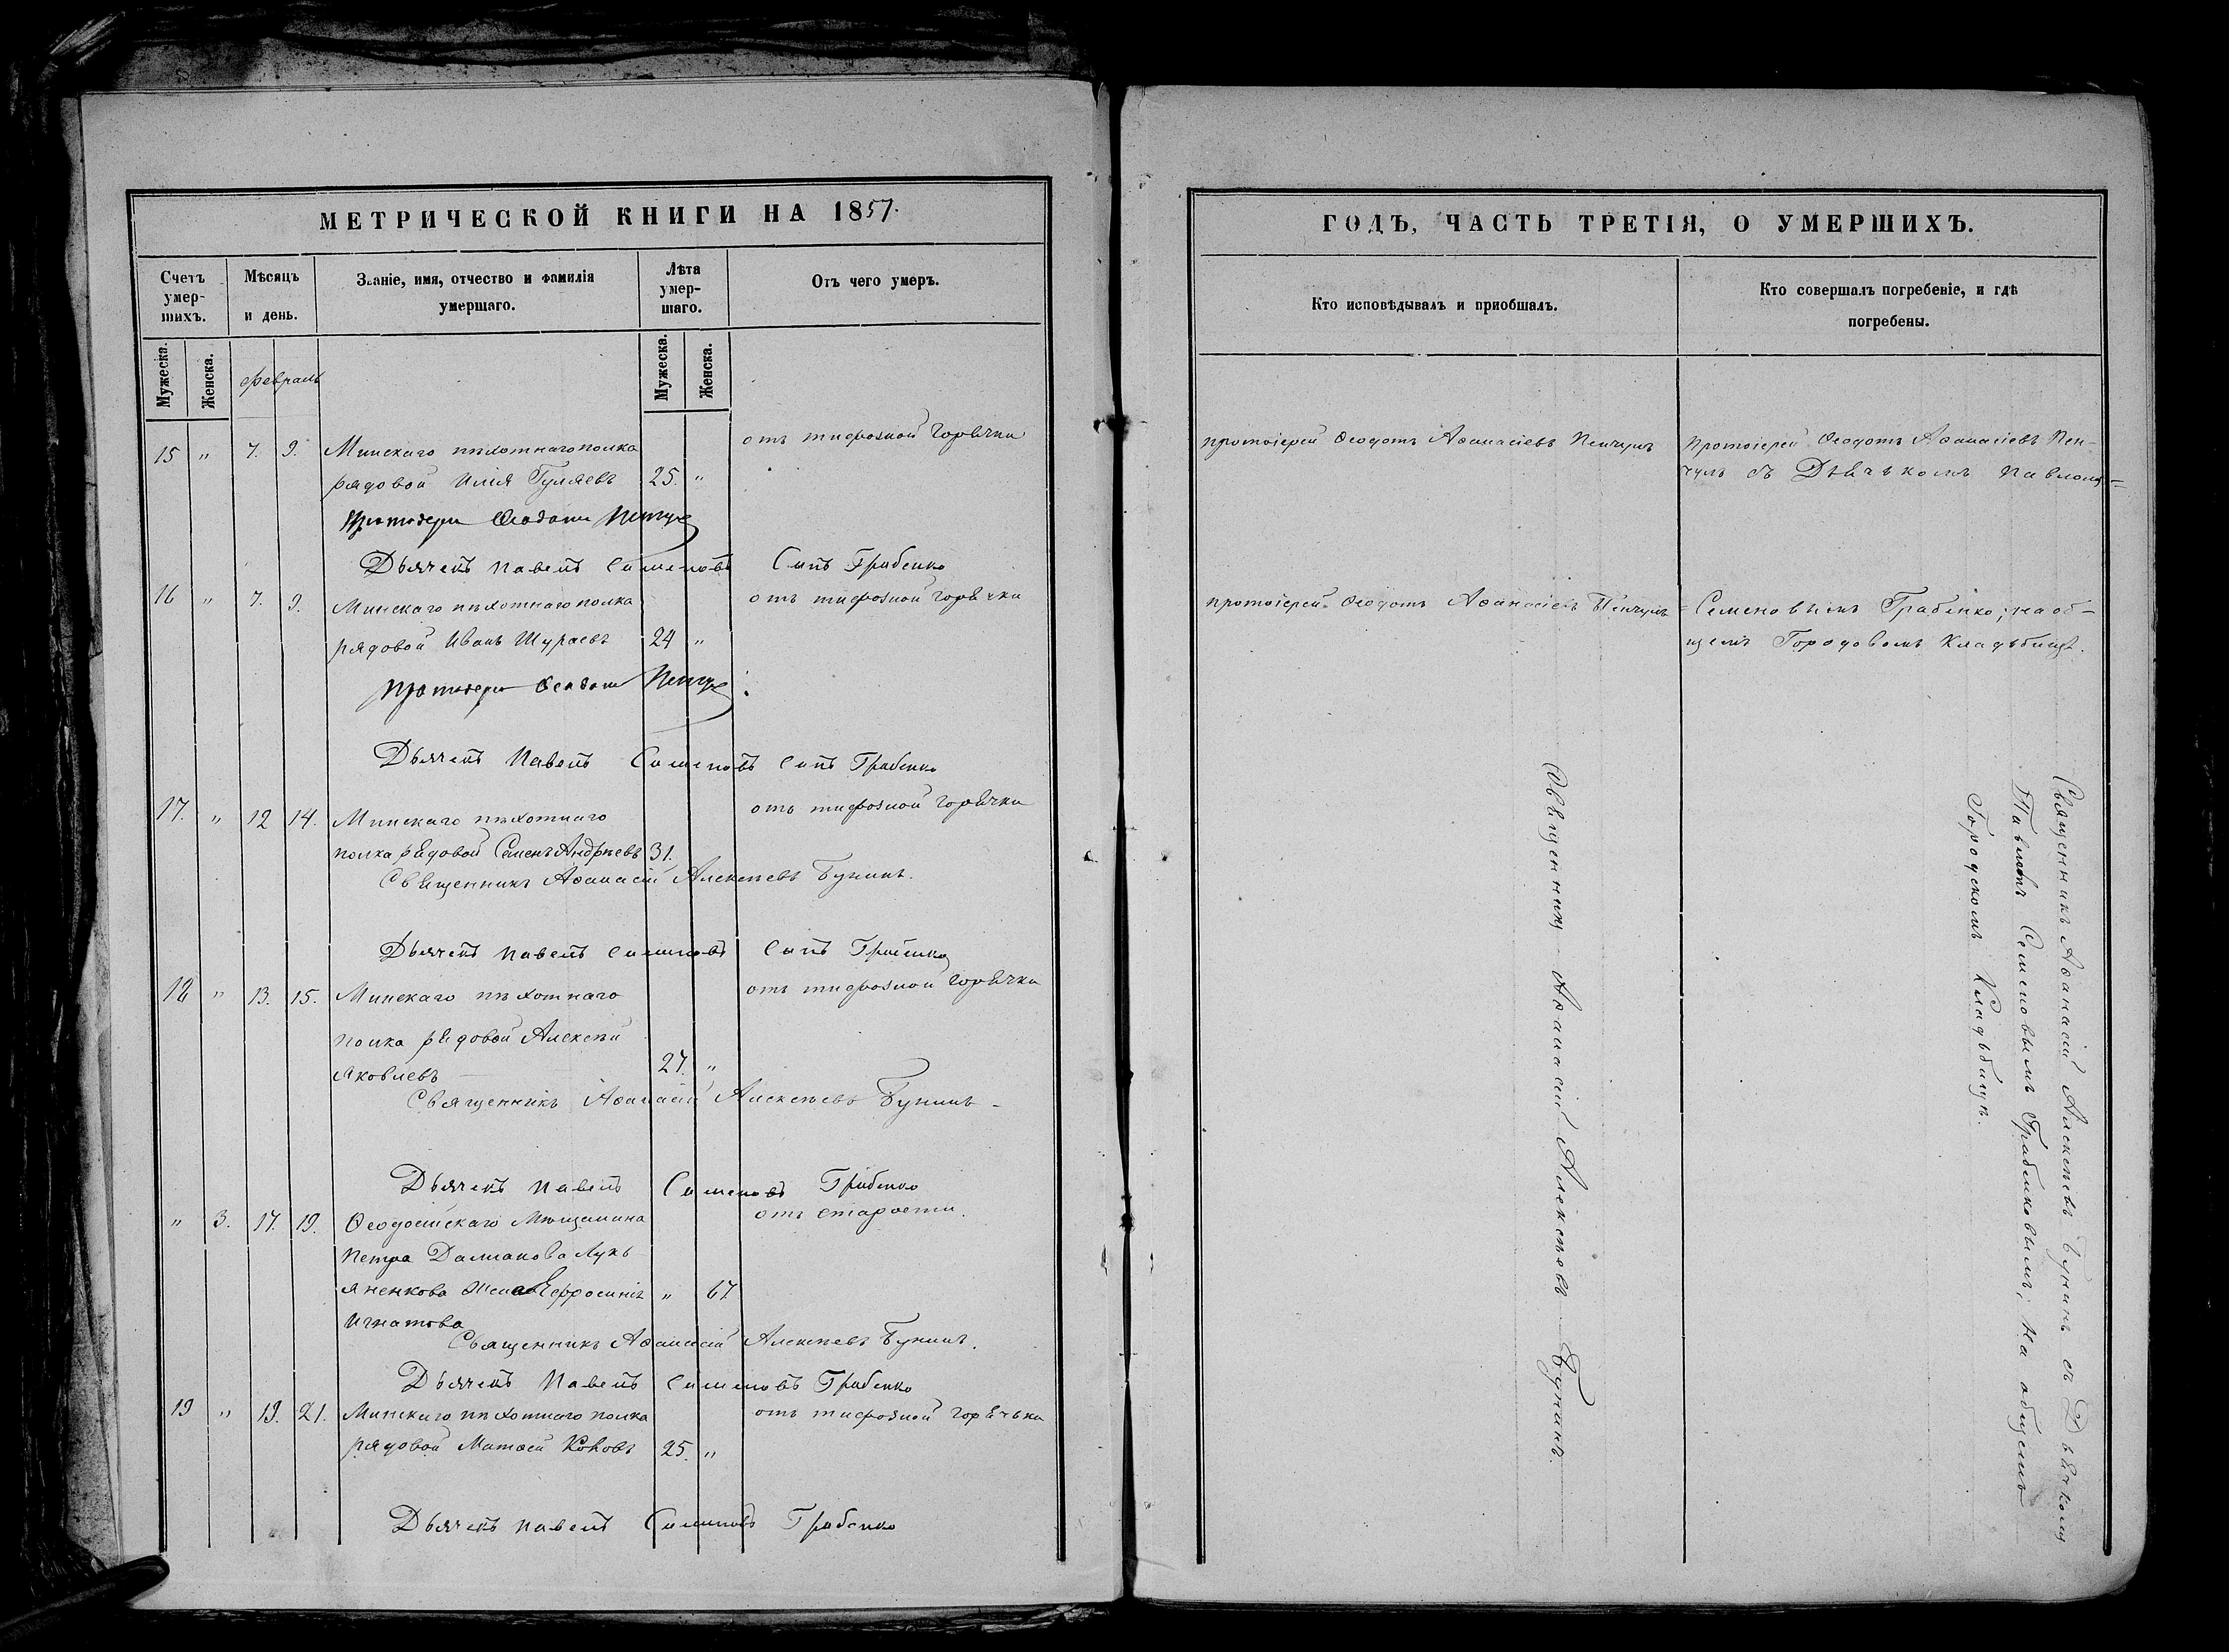 МЕТРИЧЕСКОЙ КНИГИ НА 1857.
Счетъ умер-шихъ.
Мѣсяцъ и день.
Званіе, имя, отчество и фамилія умершаго.
Лѣта умер-шаго.
Отъ чего умеръ.
Мужеска.
Женска.
февраль
Мужеска.
Женска.
15 " 7. 9. Минскаго пѣхотнаго полка отъ тифозной горячки
рядовой Илія Гуляевъ 25. "
Протоіерей Ѳеодотъ
Дьячекъ Павелъ Семеновъ Сынъ Грабенко
16 " 7. 9. Минскаго пѣхотнаго полка отъ тифозной горячки
рядовой Иванъ Шураевъ 24 "
Протоіерей Ѳеодотъ
Дьячекъ Павелъ Семеновъ Сынъ Грабенко
17. " 12 14. Минскаго пѣхотнаго отъ тифозной горячки
полка рядовой Семенъ Андреевъ 31.
Священникъ Аѳанасій Алексѣевъ Бунинъ.
Дьячекъ Павелъ Семеновъ Сынъ Грабенко
18 " 13. 15. Минскаго пѣхотнаго отъ тифозной горячки
полка рядовой Алексѣй
Яковлевъ 27. "
Священникъ Аѳанасій Алексѣевъ Бунинъ
Дьячекъ Павелъ Семеновъ Грабенко
" 3. 17. 19. Ѳеодосійскаго Мѣщанина отъ старости.
Петра Далмакова Лукъ
яненкова Жена Ефросинія " 67
Игнатова
Священникъ Аѳанасій Алексѣевъ Бунинъ.
Дьячекъ Павелъ Семеновъ Грабенко
19 " 19. 21. Минскаго пѣхотнаго полка отъ тифозной горячьки
рядовой Матѳей 25. "
Дьячекъ Павелъ Семеновъ Грабенко
ГОДЪ, ЧАСТЬ ТРЕТІЯ, О УМЕРШИХЪ.
Кто исповѣдывалъ и приобшалъ.
Кто совершалъ погребеніе, и гдѣ погребены.
протоіерей Ѳеодотъ Аѳанасіевъ Пенчулъ
протоіерей Ѳеодотъ Аѳанасіевъ Пенчулъ
Священникъ Аѳанасій Алексѣевъ Бунинъ.
Протоіерей Ѳеодотъ Аѳанасіевъ Пен-
чулъ съ Дьячькомъ Павломъ=
=Семеновымъ Грабенко, на об-
щемъ Городовомъ Кладьбищѣ.
Священникъ Аѳанасій Алексѣевъ Бунинъ съ Дьячкомъ
Павломъ Семеновымъ Грабенковымъ, на общемъ
Городскомъ Кладьбищѣ.